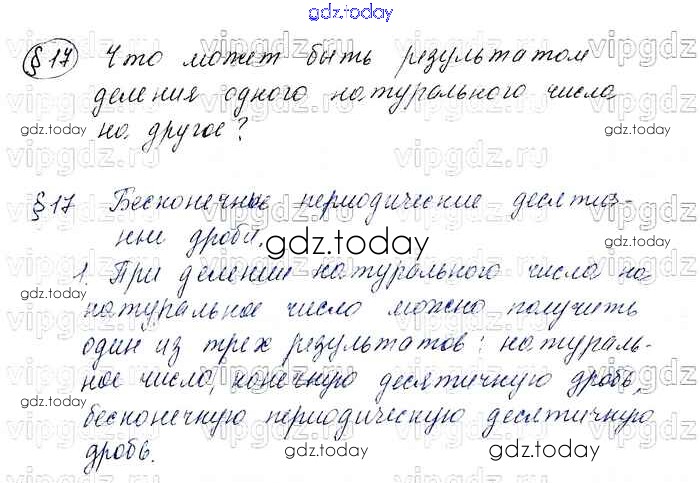 gdz.today
§17 Что может быть результатом
деления одного натурального числа
на другое?
§17 Бесконечные периодические десятич-
ные дроби.
1. При делении натурального числа на
натуральное число можно получить
один из трех результатов: натураль-
ное число, конечную десятичную дробь,
бесконечную периодическую десятичную
дробь.